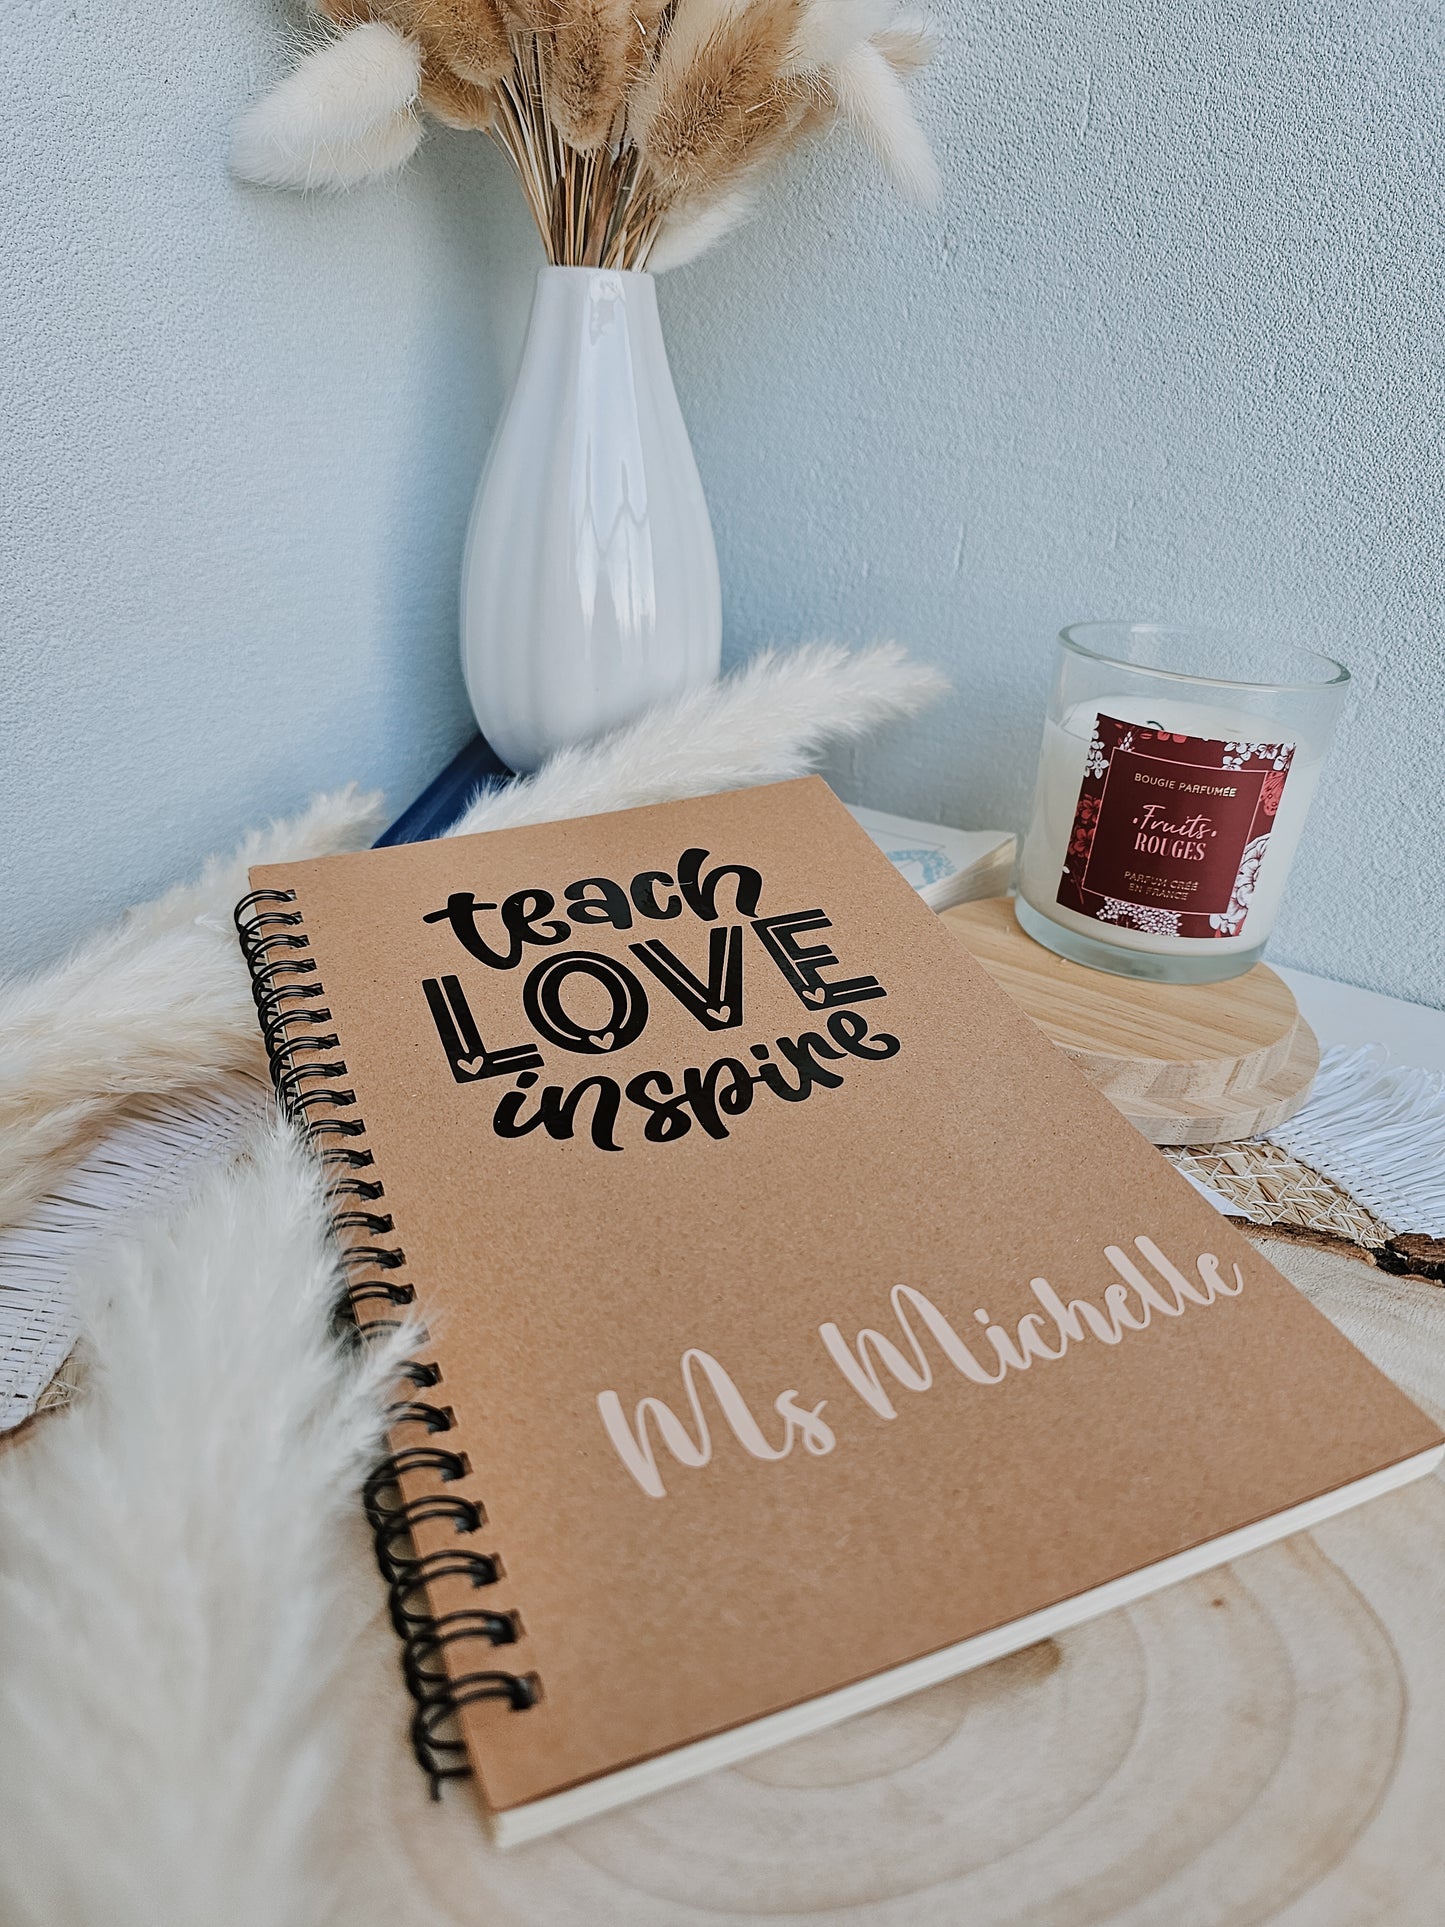 teach
LOVE
inspire
Ms Michelle
BOUGIE PARFUMÉE
•Fruits•
ROUGES
PARFUM CRÉÉ
EN FRANCE